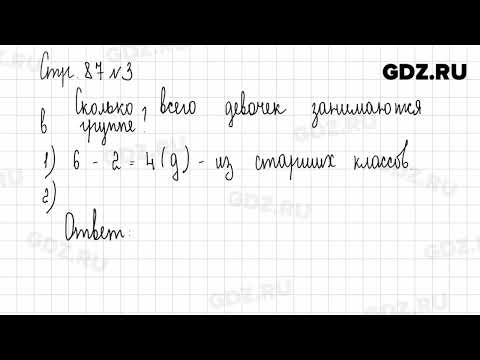 Стр. 87 №3
GDZ.RU
Сколько всего девочек занимаются
в группе?
1) 6 - 2 = 4 (д) - из старших классов
2)
Ответ:
GDZ.RU
GDZ.RU
GDZ.RU
GDZ.RU
GDZ.RU
GDZ.RU